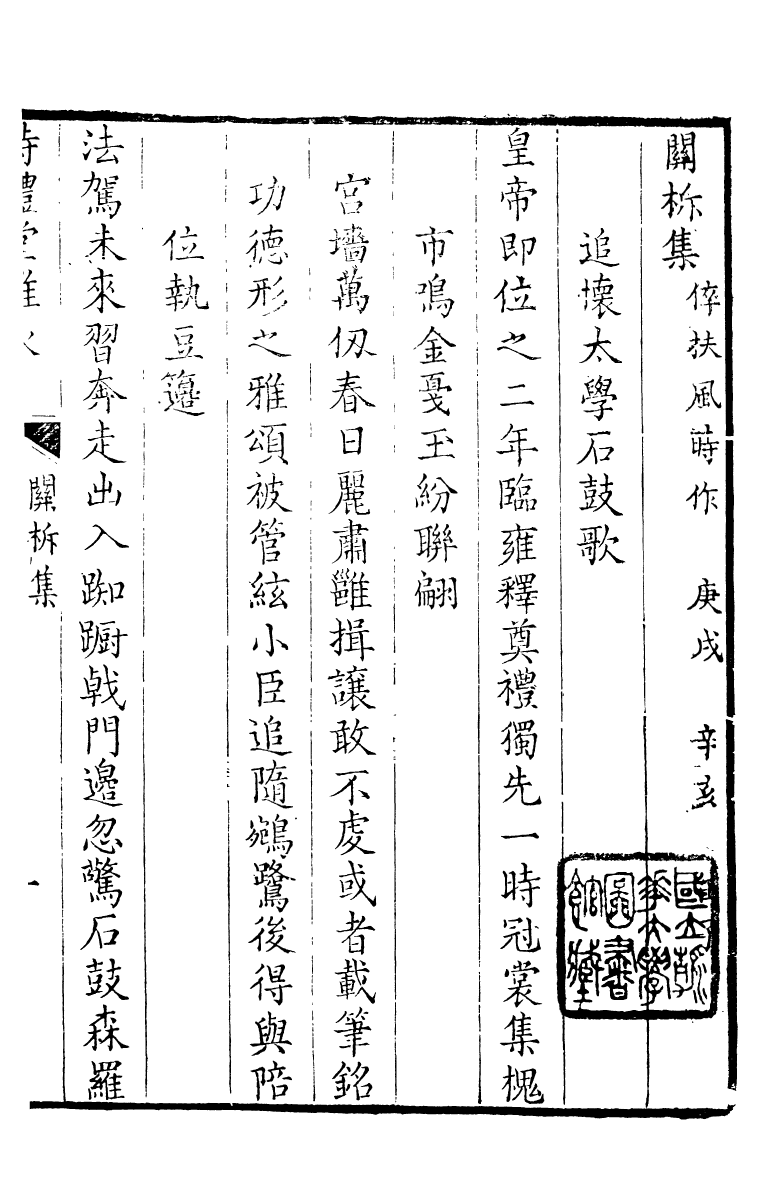 關柝集 倅扶風時作 庚戌 辛亥
追懷太學石鼓歌
皇帝即位之二年臨雍釋奠禮獨先一時冠裳集槐
市鳴金戛玉紛聯翩
宮墻萬仭春日麗肅雝揖讓敢不虔或者載筆銘
功德形之雅頌被管絃小臣追隨鵷鷺後得與陪
位執豆籩
法駕未來習奔走出入踟躕戟門邊忽驚石鼓森羅
關柝集
一